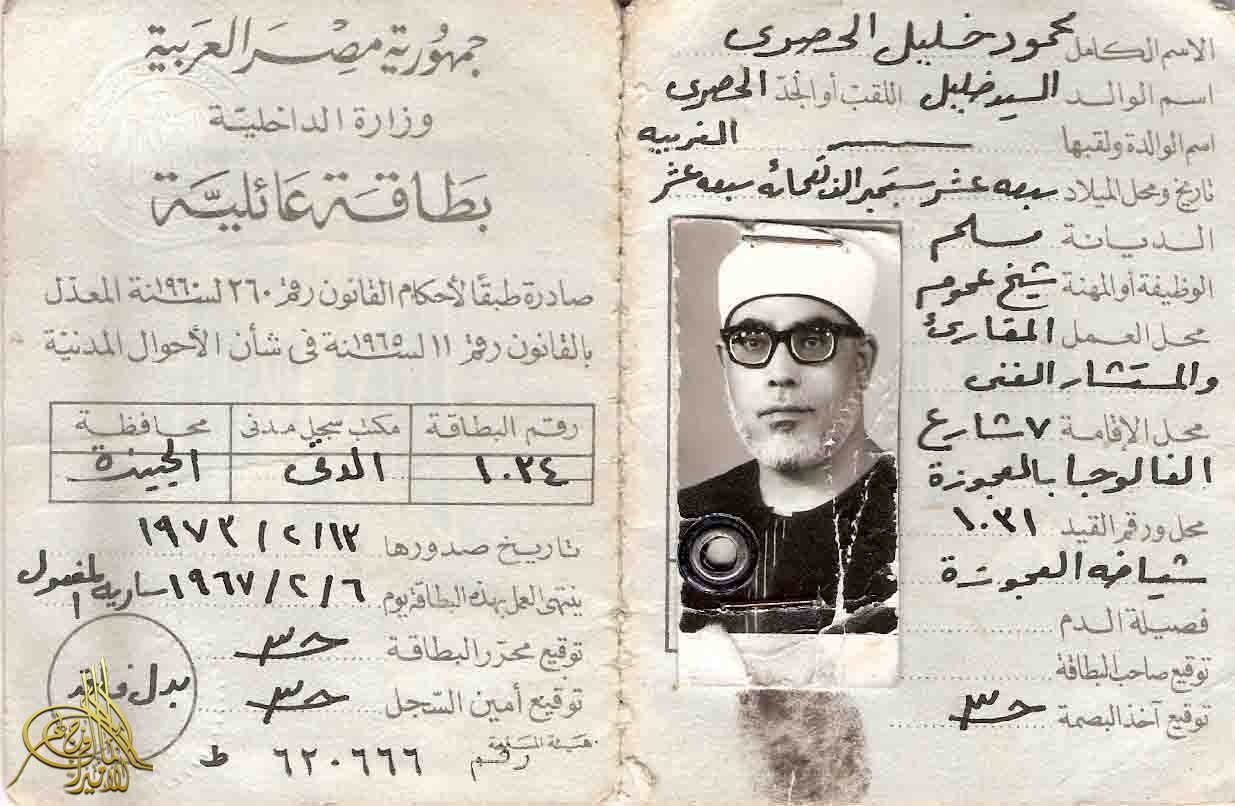 الاسم الكامل محمود خليل الحصرى
اسم الوالد السيد خليل اللقب أو الجد الحصرى
اسم الوالدة ولقبها الغربيه
تاريخ ومحل الميلاد سبعه عشر سبتمبر الف تسعمائه سبعه عشر
الديانة مسلم
الوظيفة أو المهنة شيخ عموم
محل العمل المقارئ
والمستشار الفنى
محل الإقامة ٧ شارع
الفالوجا بالعجوزة
محل ورقم القيد ١٠٣١
شياخه العجوزة
فصيلة الدم
توقيع صاحب البطاقة
توقيع آخذ البصمة
جمهورية مصر العربية
وزارة الداخلية
بطاقة عائلية
صادرة طبقًا لأحكام القانون رقم ٢٦٠ لسنة ١٩٦٠ المعدّل
بالقانون رقم ١١ لسنة ١٩٦٥ فى شأن الأحوال المدنيّة
رقم البطاقة مكتب سجل مدنى محافظة
١٠٣٤ الدقى الجيزة
تاريخ صدورها ١٣/٢/١٩٧٣
ينتهى العمل بهذه البطاقة يوم ٦/٢/١٩٦٧ ساريه المفعول
توقيع محرّر البطاقة
توقيع أمين السّجل
بدل فاقد
رقم ٦٢٠٦٦٦ ط